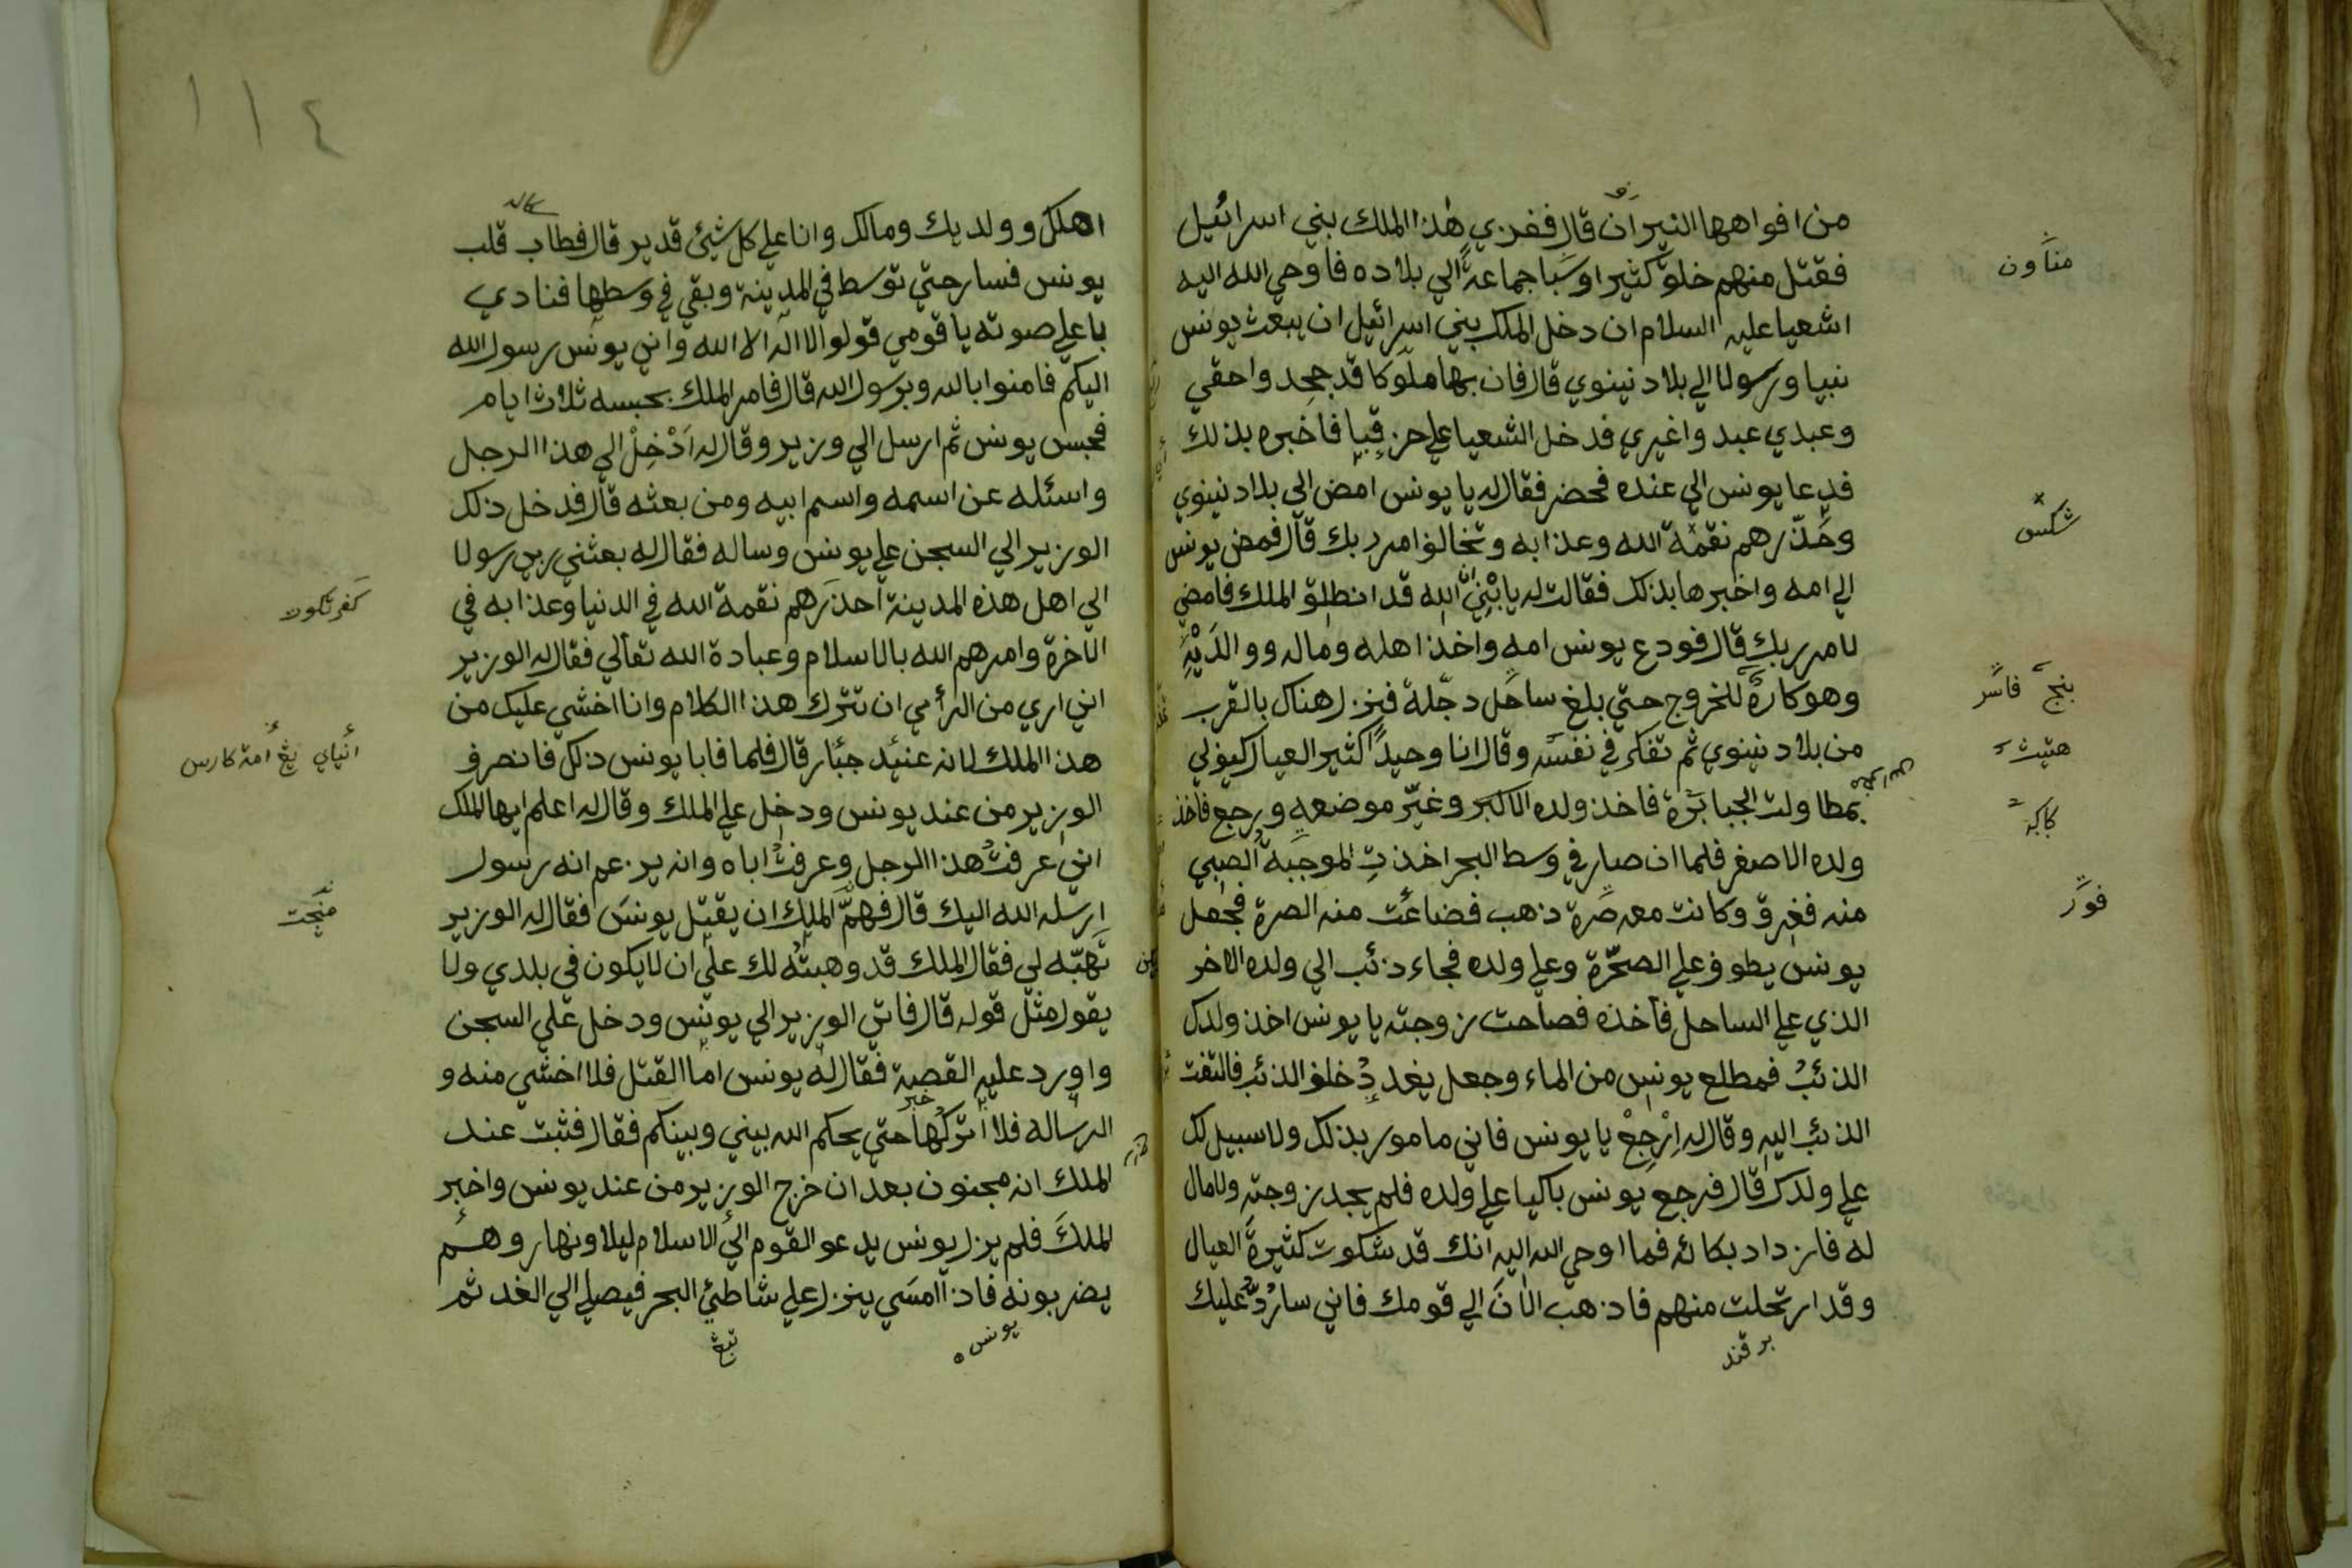 من افواهها النيران قال ففزي هذا الملك بني اسرائيل
فقتل منهم خلق كثيرا وسبا جماعة الي بلاده فاوحي الله اليه
اشعيا عليه السلام ان دخل الملك بني اسرائيل ان يبعث يونس
نبيا ورسولا الي بلاد نينوي قال فان بها ملوكا قد جحدوا حقي
وعبدي عبدوا غيري فدخل الشعيا علي حزقيا فاخبره بذلك
فدعا يونس الي عنده فحضر فقال له يا يونس امض الي بلاد نينوي
وحذّرهم نقمة الله وعذابه وتخالفوا امر ربك قال فمض يونس
الي امه واخبرها بذلك فقالت له يا بني الله قد انطلق الملك فامض
لامر ربك قال فودع يونس امه واخذ اهله وماله ووالديه
وهو كاره للخروج حتي بلغ ساحل دجلة فنزل هناك بالقرب
من بلاد نينوي ثم تفكر في نفسه وقال انا وحيدًا كثير العيال كيف لي
بمطاولت الجبابرة فاخذ ولده الاكبر وغيّر موضعه ورجع فاخذ
ولده الاصغر فلما ان صار في وسط البحر اخذتِ الموجبة الصبي
منه فغرق وكانت معه صرة ذهب فضاعت منه الصرة فجعل
يونس يطوف علي الصرّة وعلي ولده فجاء ذئب الي ولده الاخر
الذي علي الساحل فاخذه فصاحت زوجته يا يونس اخذ ولدك
الذئبُ فمطلع يونس من الماء وجعل يغدد خلف الذئب فالتفت
الذئب اليه وقال له اِرْجِعْ يا يونس فاني مامور بذلك ولا سبيل لك
علي ولدك قال فرجع يونس باكيا علي ولده فلم يجد زوجته ولا مال
له فازداد بكائه فما اوحي الله اليه انك قد شكوت كثيرة العيال
وقد ارتحلت منهم فاذهب الان الي قومك فاني ساردّ عليك
مناون
شكس
بنچ فاسر
هتيت
كاكه
فور
اهلك وولديك ومالك وانا علي كل شيئ قدير قال فطاب قلب
يونس فسار حتي توسط في المدينة وبقي في وسطها فنادي
باعلي صوته يا قومي قولوا لا اله الا الله واني يونس رسول الله
اليكم فامنوا بالله وبرسول الله قال فامر الملك بحبسه ثلاث ايام
فحبس يونس ثم ارسل الي وزير وقال له اَدْخِلْ الي هذا الرجل
واسئله عن اسمه واسم ابيه ومن بعثه قال فدخل ذلك
الوزير الي السجن علي يونس وساله فقال له بعثني ربي رسولا
الي اهل هذه المدينة احذرهم نقمة الله في الدنيا وعذابه في
الاخرة وامرهم الله بالاسلام وعبادة الله تعالي فقال له الوزير
اني اري من الرأي ان تترك هذا الكلام وانا اخشي عليك من
هذا الملك لانه عنيد جبّار قال فلما فابا يونس ذلك فانصرف
الوزير من عند يونس ودخل علي الملك وقال له اعلم ايها الملك
اني عرفت هذا الرجل وعرفت اباه وانه يزعم انه رسول
ارسله الله اليك قال فهمّ الملك ان يقتل يونس فقال له الوزير
تهبّه لي فقال الملك قد وهبته لك علي ان لا يكون في بلدي ولا
يقول مثل قوله قال فاتي الوزير الي يونس ودخل علي السجن
واورد عليه القصة فقال له يونس اما القتل فلا اخشي منه و
الرساله فلا اتركها حتي يحكم الله بيني وبينكم فقال فثبت عند
الملك انه مجنون بعد ان خرج الوزير من عند يونس واخبر
الملك فلم يزل يونس يدعو القوم الي الاسلام ليلا ونهار وهم
يضربونه فاذا امسي ينزل علي شاطئ البحر فيصلي الي الغد ثم
١١٤
يونس